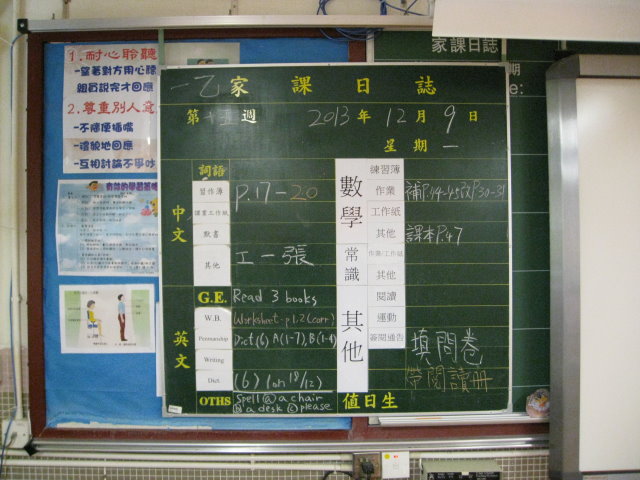 家課日誌
1.耐心聆聽
-望著對方用心聽
組員說完才回應
2.尊重別人意
-不隨便插嘴
-禮貌地回應
-互相討論不爭吵
一乙家課日誌
第十五週 2013年12月9日
星期一
中文
詞語
習作簿 P.17-20
課業工作紙
默書
其他 工一張
英文
G.E. Read 3 books
W.B. Worksheet-p.1,2(corr)
Penmanship Dict(6) A(1-7), B(1-4)
Writing
Dict (6) (on 18/12)
OTHS Spell ⓐ a chair
ⓑ a desk ⓒ please
數學
練習簿
作業 補P.44-45及P.30-31
工作紙
其他 課本P.47
常識
作業/工作紙
其他
其他
閱讀
運動
簽閱通告
填問卷
帶閱讀冊
值日生